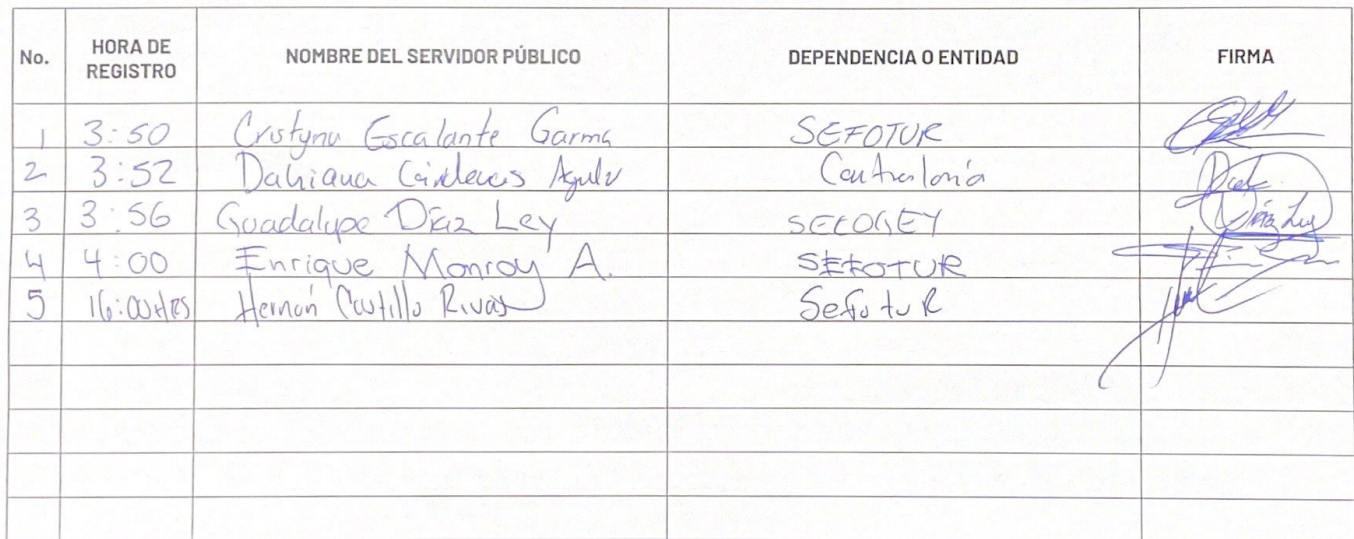 No. HORA DE REGISTRO NOMBRE DEL SERVIDOR PÚBLICO DEPENDENCIA O ENTIDAD FIRMA
1 3:50 Escalante Garma SEFOTUR
2 3:52 Dahiana Cárdenas Contraloría
3 3:56 Guadalupe Díaz Ley SECOGEY Díaz Ley
4 4:00 Enrique Monroy A. SEFOTUR
5 16:00 Hrs Hernán Castillo Rivas Sefotur